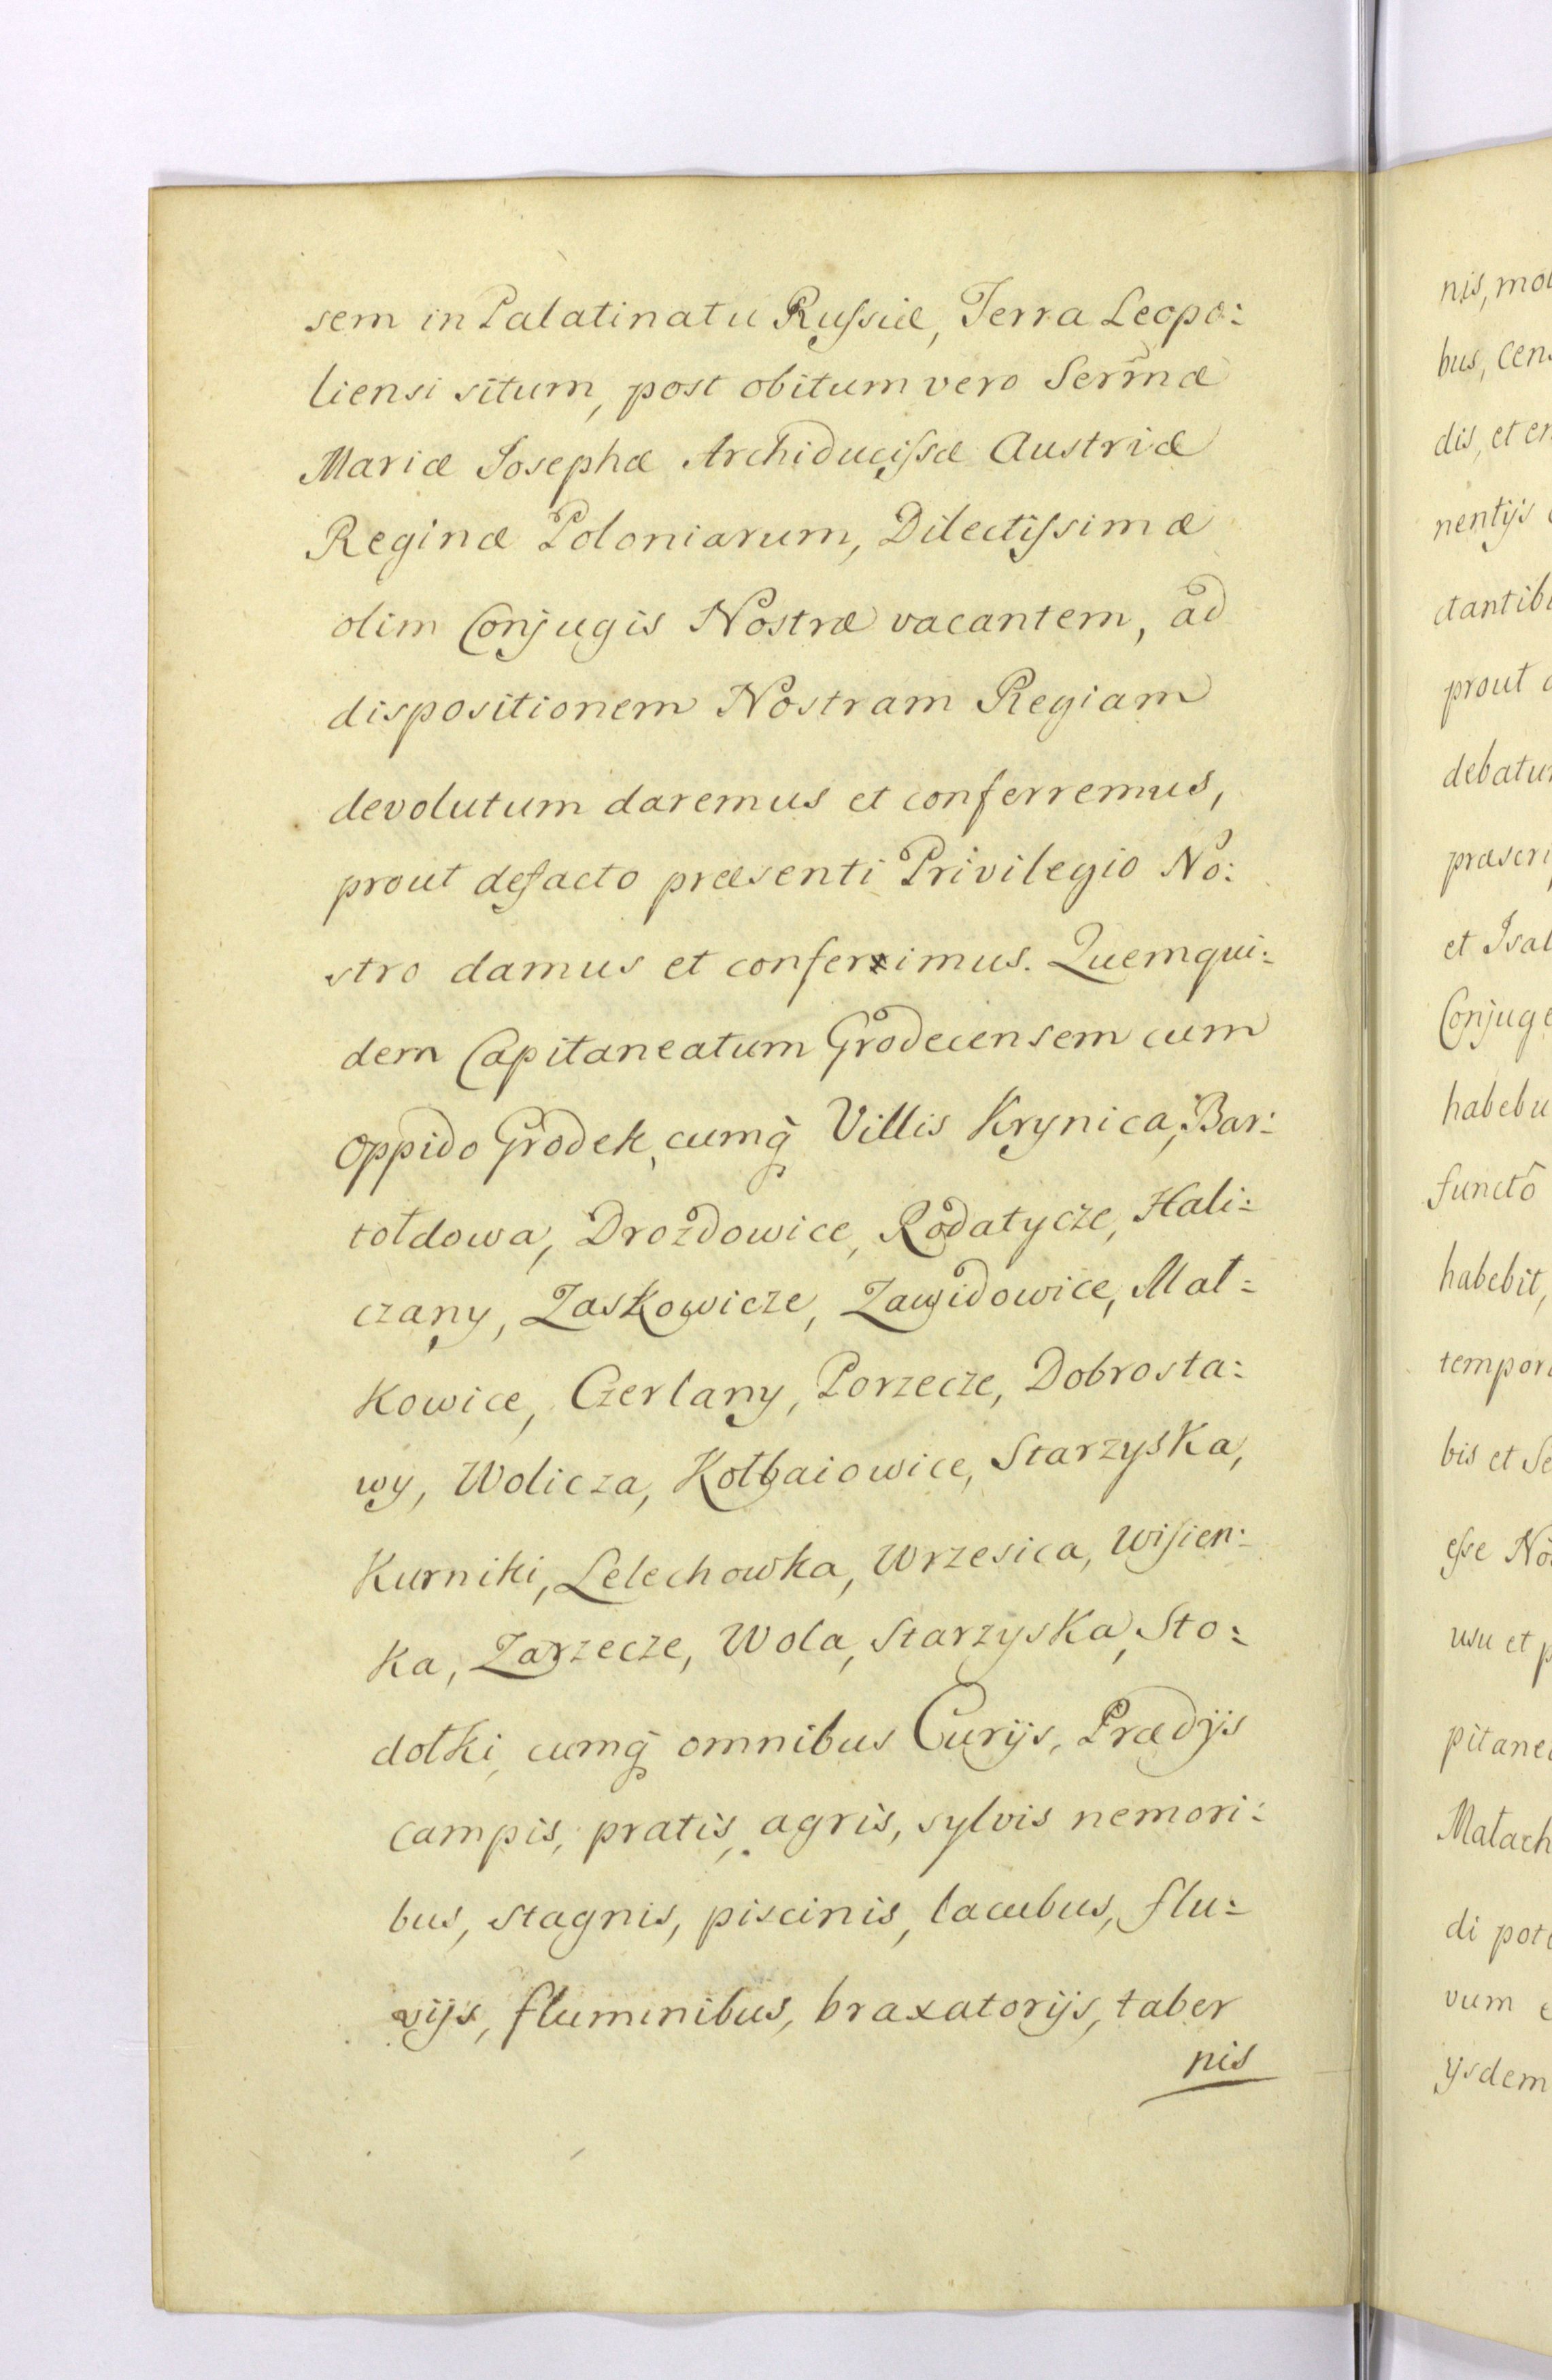 sem in Palatinatu Russiæ, Terra Leopo:
liensi situm, post obitum vero Serm̃æ
Mariæ Josephæ Archiducissæ Austriæ
Reginæ Poloniarum, Dilectissimæ
olim Conjugis Nostræ vacantem, ad
dispositionem Nostram Regiam
devolutum daremus et conferremus,
prout defacto præsenti Privilegio No:
stro damus et conferximus. Quemqui:
dem Capitaneatum Grodecensem cum
Oppido Grodek, cumq̃ Villis Krynica, Bar:
tołdowa, Drożdowice, Rodatycze, Hali:
czany, Zaskowicze, Zawidowice, Mał:
kowice, Czerlany, Porzecze, Dobrosta:
wy, Wolicza, Kołbaiowice, Starzyska,
Kurniki, Lelechowka, Wrzesica, Wisien:
ka, Zarzecze, Wola, Starzyska, Sto:
dołki, cumq̃ omnibus Curijs, Prædijs
campis, pratis, agris, sylvis nemori:
bus, stagnis, piscinis, lacubus, flu:
vijs, fluminibus, braxatorijs, taber
nis
nis, mol
bus, cens
dis, et em
nentijs
ctantib
prout
debatur
præscri
et Isab
Conjuge
habebu
functô
habebit,
tempor
bis et Se
esse No
usu et p
pitane
Małach
di pot
vum
ijsdem